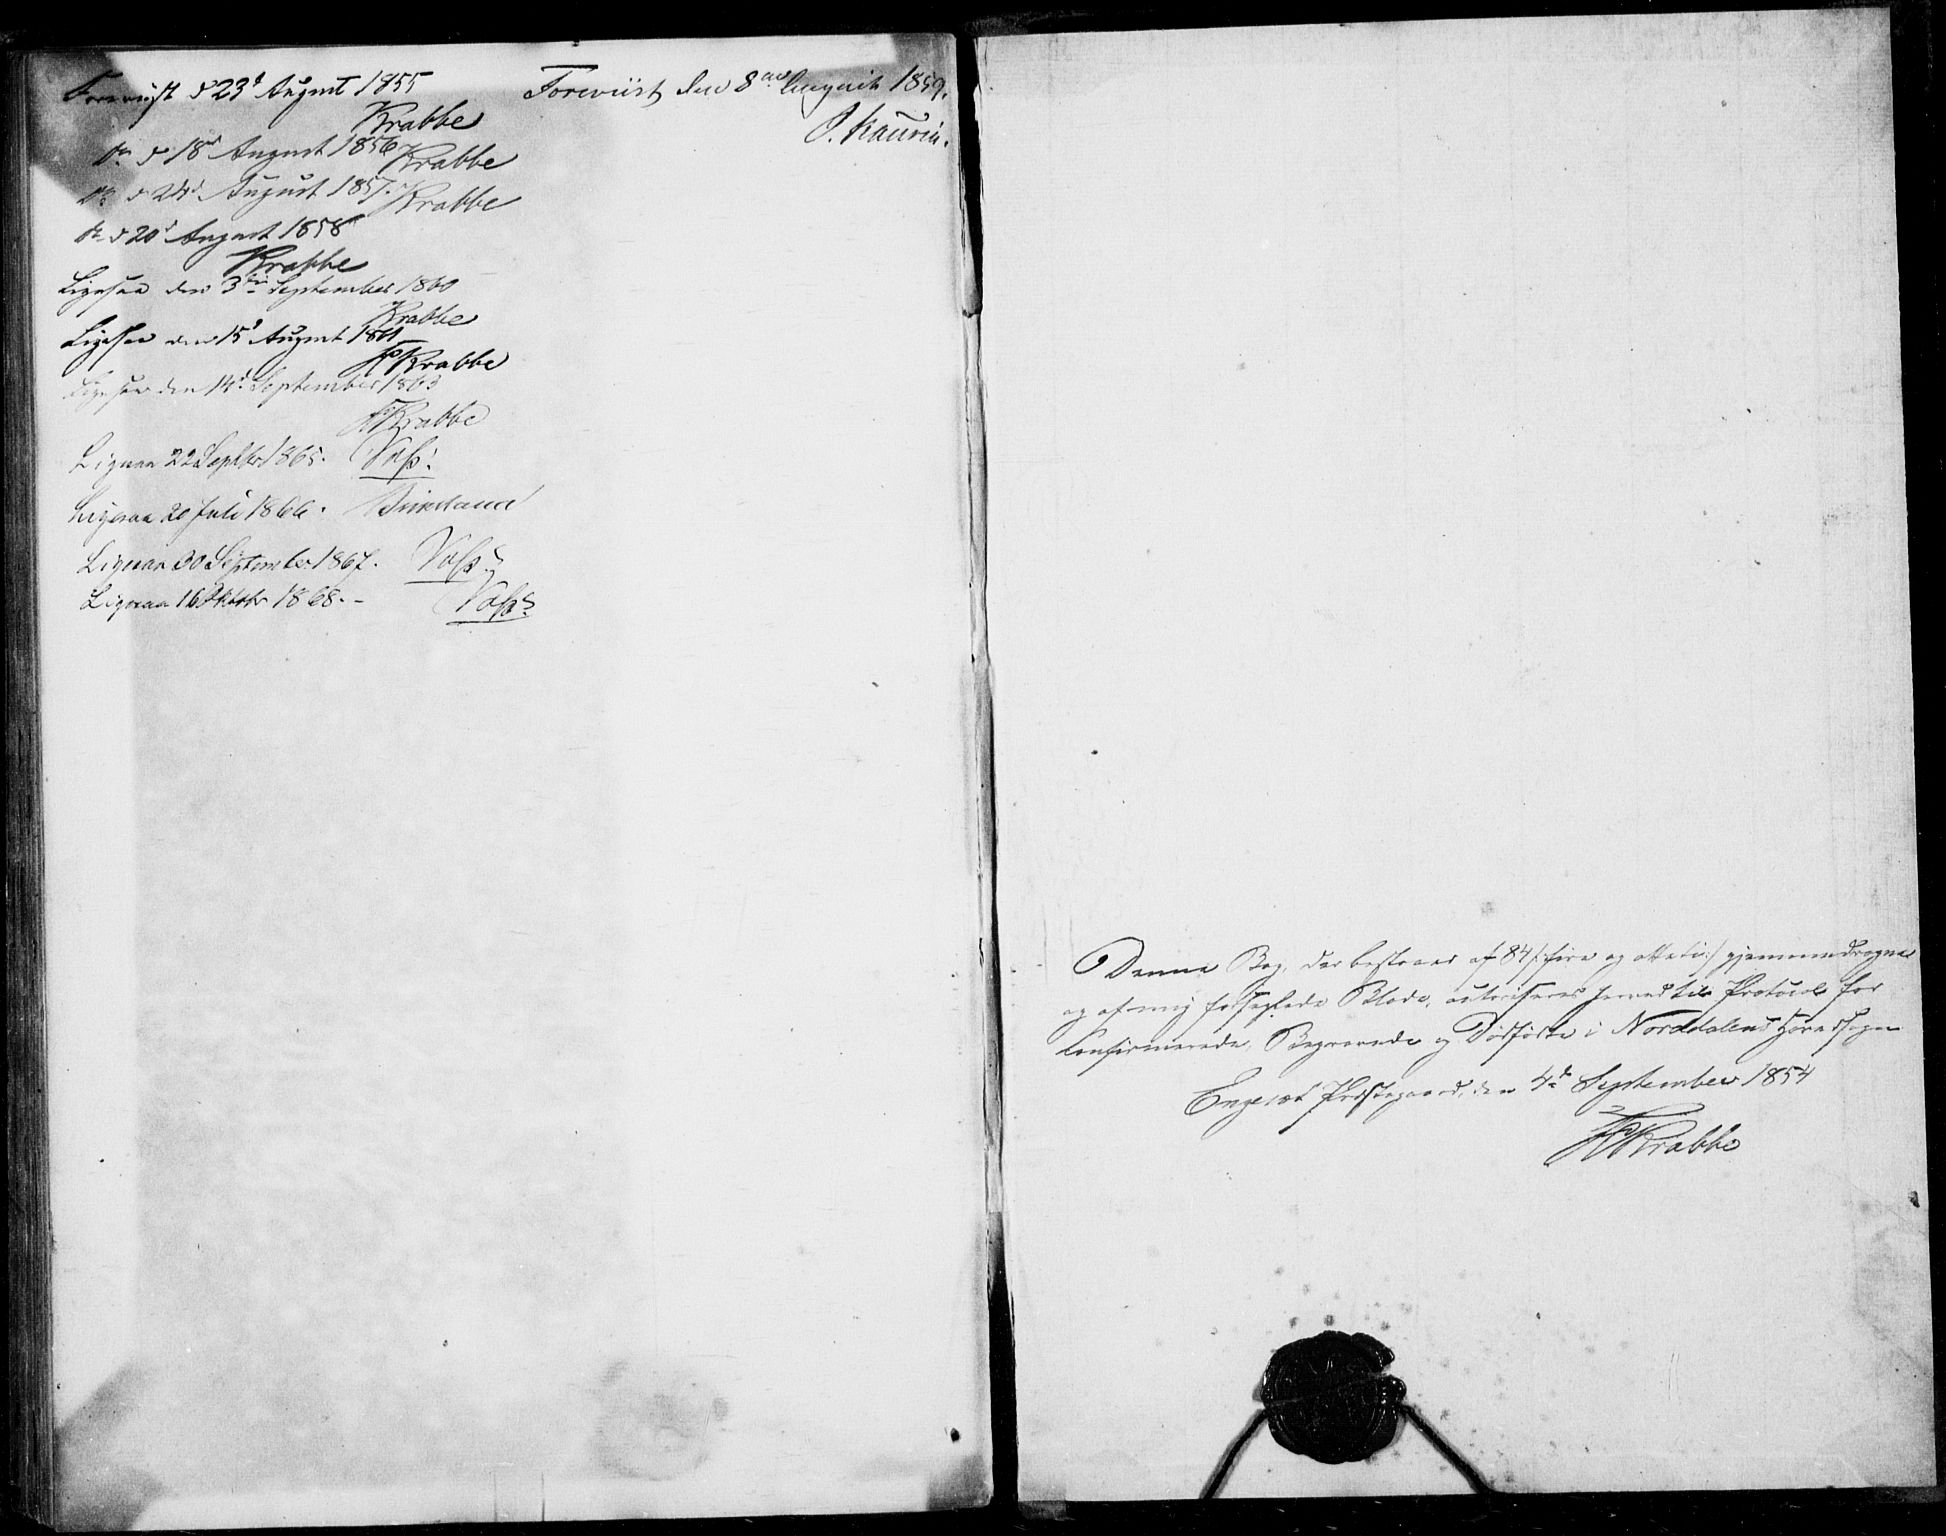 Foreviist d 23d August 1855
Krabbe
Do d 18d August 1856 Krabbe
Do d 24d August 1857. Krabbe
Do d 20d August 1858
Krabbe
Ligesaa den 3die September 1860
Krabbe
Ligesaa den 15d August 1861
HKrabbe
Ligesaa den 14d September 1863
HKrabbe
Ligesaa 22 Septbr 1865. Voss.
Ligesaa 20 Juli 1866.
Ligesaa 30 September 1867. Voss.
Ligesaa 16 Oktobr 1868. - Voss.
Foreviist den 8de August 1859.
J. Kaurin.
Denne Bog, der bestaaer af 84 /: fire og otteti :/ gjennemdragne
og af mig forseglede Blade, autoriseres herved til Protocol for
Confirmerede, Begravede og Dødfødte i Norddalens Hovedsogn
Engeset Præstegaard, den 4de September 1854
HKrabbe